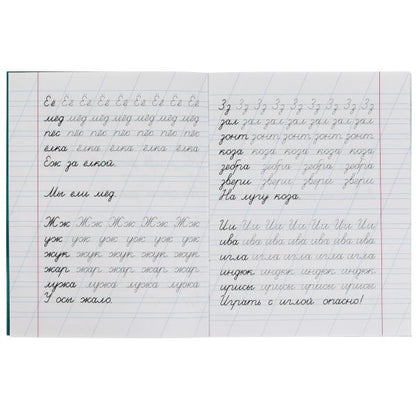 Её Её Её Её Её Её Её Её Её
мёд мёд мёд мёд мёд мёд мёд
пёс пёс пёс пёс пёс пёс пёс
ёлка ёлка ёлка ёлка ёлка
Ёж за ёлкой.
Мы ели мёд.
Жж Жж Жж Жж Жж Жж
уж уж уж уж уж уж уж
жук жук жук жук жук жук
жар жар жар жар жар жар
лужа лужа лужа лужа лужа
У осы жало.
Зз Зз Зз Зз Зз Зз Зз Зз
зал зал зал зал зал зал зал
зонт зонт зонт зонт зонт
коза коза коза коза коза
зебра зебра зебра зебра
звери звери звери звери
На лугу коза.
Ии Ии Ии Ии Ии Ии Ии
ива ива ива ива ива ива
игла игла игла игла игла
индюк индюк индюк индюк
ирисы ирисы ирисы ирисы
Играть с иглой опасно!